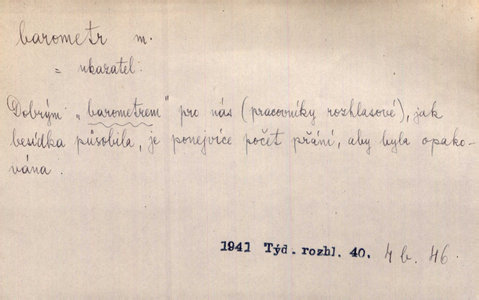 barometr m.
= ukazatel:
Dobrým „barometrem" pro nás (pracovníky rozhlasové), jak
besídka působila, je ponejvíce počet přání, aby byla opako-
vána.
1941 Týd. rozhl. 40. 4 b. 46.